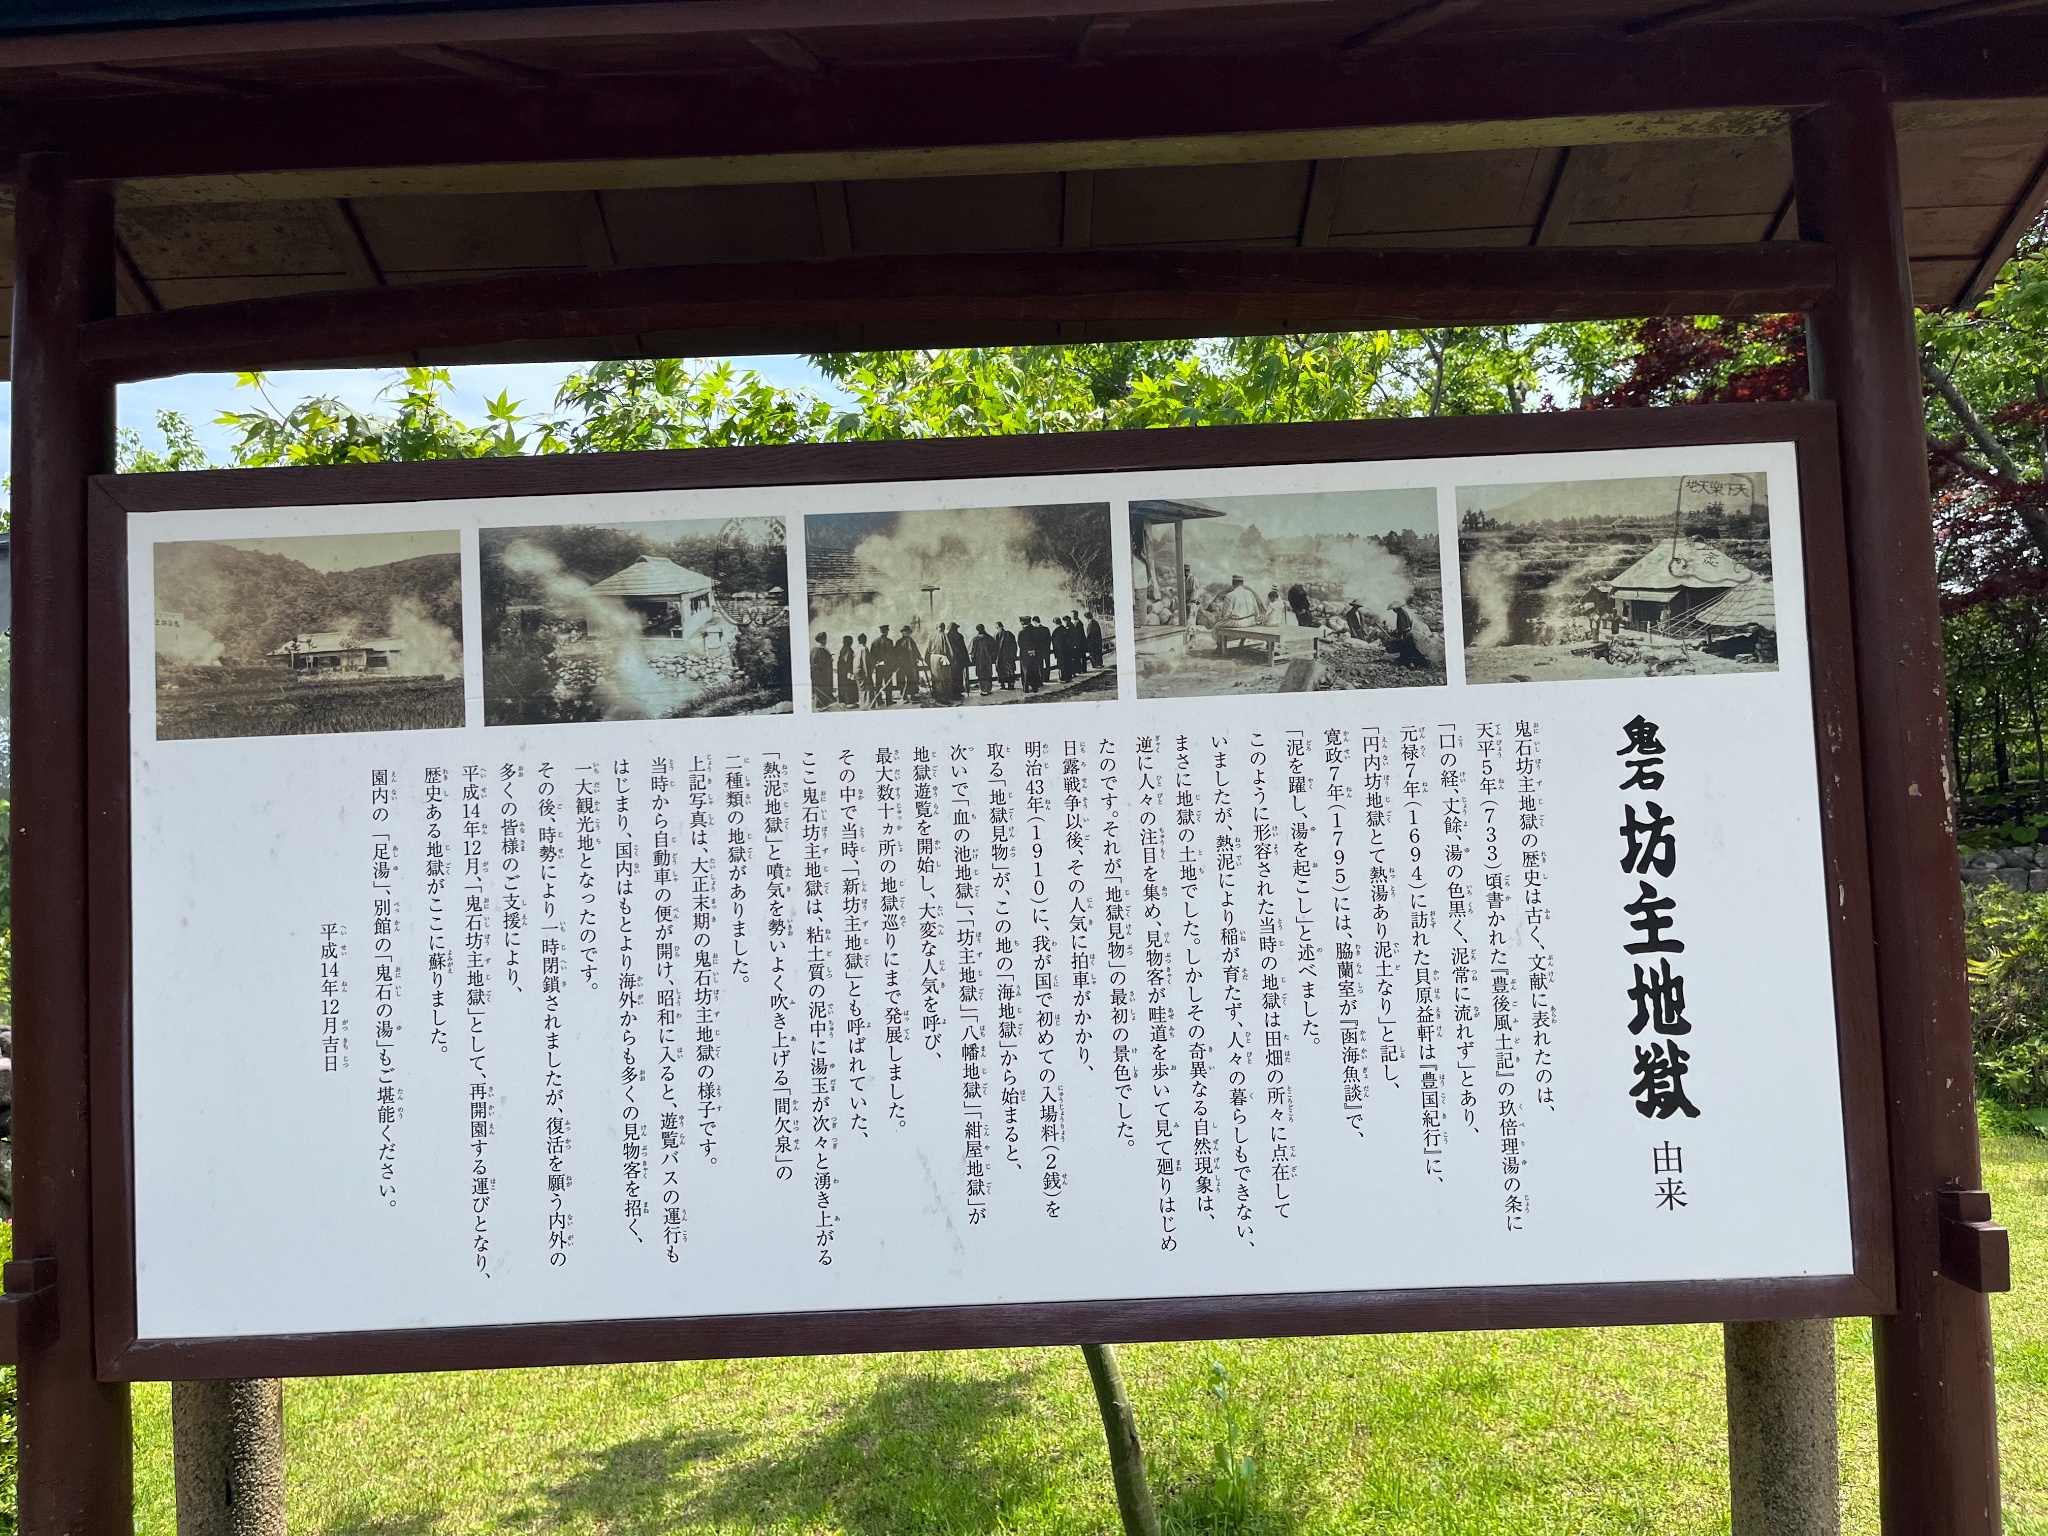 鬼石坊主地獄 由来
鬼石坊主地獄の歴史は古く、文献に表れたのは、
天平5年(733)頃書かれた『豊後風土記』の玖倍理湯の条に
「口の経、丈餘、湯の色黒く、泥常に流れず」とあり、
元禄7年(1694)に訪れた貝原益軒は『豊国紀行』に、
「円内坊地獄とて熱湯あり泥土なり」と記し、
寛政7年(1795)には、脇蘭室が『函海魚談』で、
「泥を躍し、湯を起こし」と述べました。
このように形容された当時の地獄は田畑の所々に点在して
いましたが、熱泥により稲が育たず、人々の暮らしもできない、
まさに地獄の土地でした。しかしその奇異なる自然現象は、
逆に人々の注目を集め、見物客が畦道を歩いて見て廻りはじめ
たのです。それが「地獄見物」の最初の景色でした。
日露戦争以後、その人気に拍車がかかり、
明治43年(1910)に、我が国で初めての入場料(2銭)を
取る「地獄見物」が、この地の「海地獄」から始まると、
次いで「血の池地獄」、「坊主地獄」「八幡地獄」「紺屋地獄」が
地獄遊覧を開始し、大変な人気を呼び、
最大数十ヵ所の地獄巡りにまで発展しました。
その中で当時、「新坊主地獄」とも呼ばれていた、
ここ鬼石坊主地獄は、粘土質の泥中に湯玉が次々と湧き上がる
「熱泥地獄」と噴気を勢いよく吹き上げる「間欠泉」の
二種類の地獄がありました。
上記写真は、大正末期の鬼石坊主地獄の様子です。
当時から自動車の便が開け、昭和に入ると、遊覧バスの運行も
はじまり、国内はもとより海外からも多くの見物客を招く、
一大観光地となったのです。
その後、時勢により一時閉鎖されましたが、復活を願う内外の
多くの皆様のご支援により、
平成14年12月、「鬼石坊主地獄」として、再開園する運びとなり、
歴史ある地獄がここに蘇りました。
園内の「足湯」、別館の「鬼石の湯」もご堪能ください。
平成14年12月吉日
地天楽下天